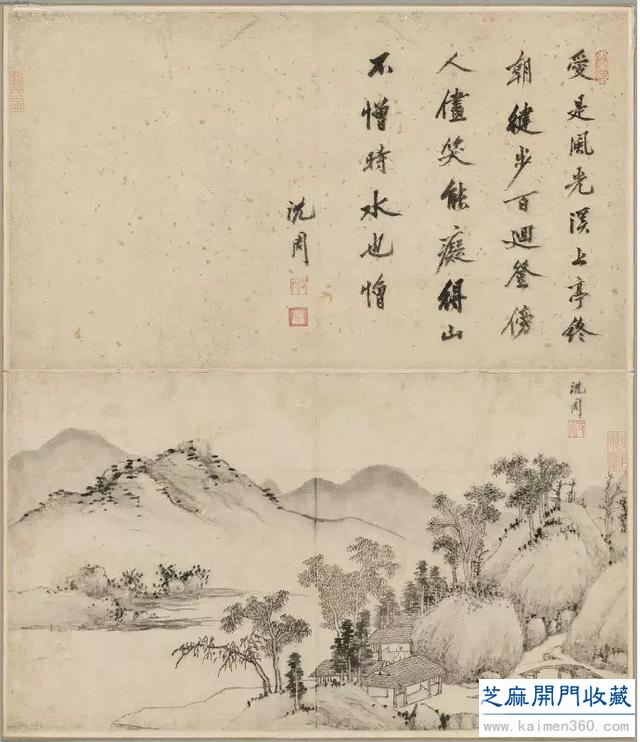 愛是風光溪上亭終
朝徤步百迴登傍
人儘笑能癡得山
不憎時水也憎
沈周
沈周
芝麻開門收藏
www.kaimen360.com